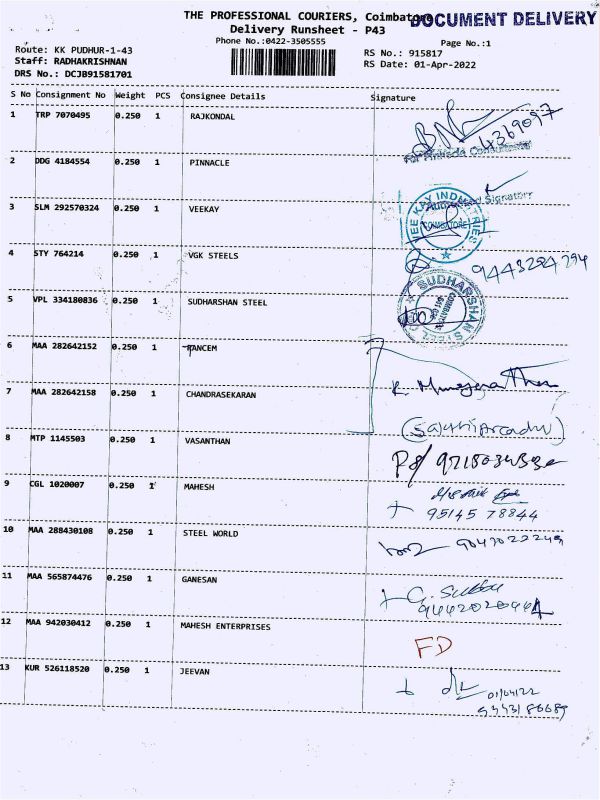 THE PROFESSIONAL COURIERS, Coimbatore
DOCUMENT DELIVERY
Delivery Runsheet - P43
Phone No.:0422-3505555
Page No.:1
Route: KK PUDHUR-1-43
RS No.: 915817
Staff: RADHAKRISHNAN
RS Date: 01-Apr-2022
DRS No.: DCJB91581701
S No Consignment No Weight PCS Consignee Details Signature
1 TRP 7070495 0.250 1 RAJKONDAL
4369097
For Pinnacle Consultants
2 DDG 4184554 0.250 1 PINNACLE
Authorised Signatory
3 SLM 292570324 0.250 1 VEEKAY
VEE KAY INDUSTRIES
COIMBATORE
4 STY 764214 0.250 1 VGK STEELS
5 VPL 334180836 0.250 1 SUDHARSHAN STEEL
SUDHARSHAN STEEL
6 MAA 282642152 0.250 1 RANCEM
7 MAA 282642158 0.250 1 CHANDRASEKARAN
8 MTP 1145503 0.250 1 VASANTHAN
9 CGL 1020007 0.250 1 MAHESH
95145 78844
10 MAA 288430108 0.250 1 STEEL WORLD
11 MAA 565874476 0.250 1 GANESAN
12 MAA 942030412 0.250 1 MAHESH ENTERPRISES
FD
13 KUR 526118520 0.250 1 JEEVAN
01/04/22